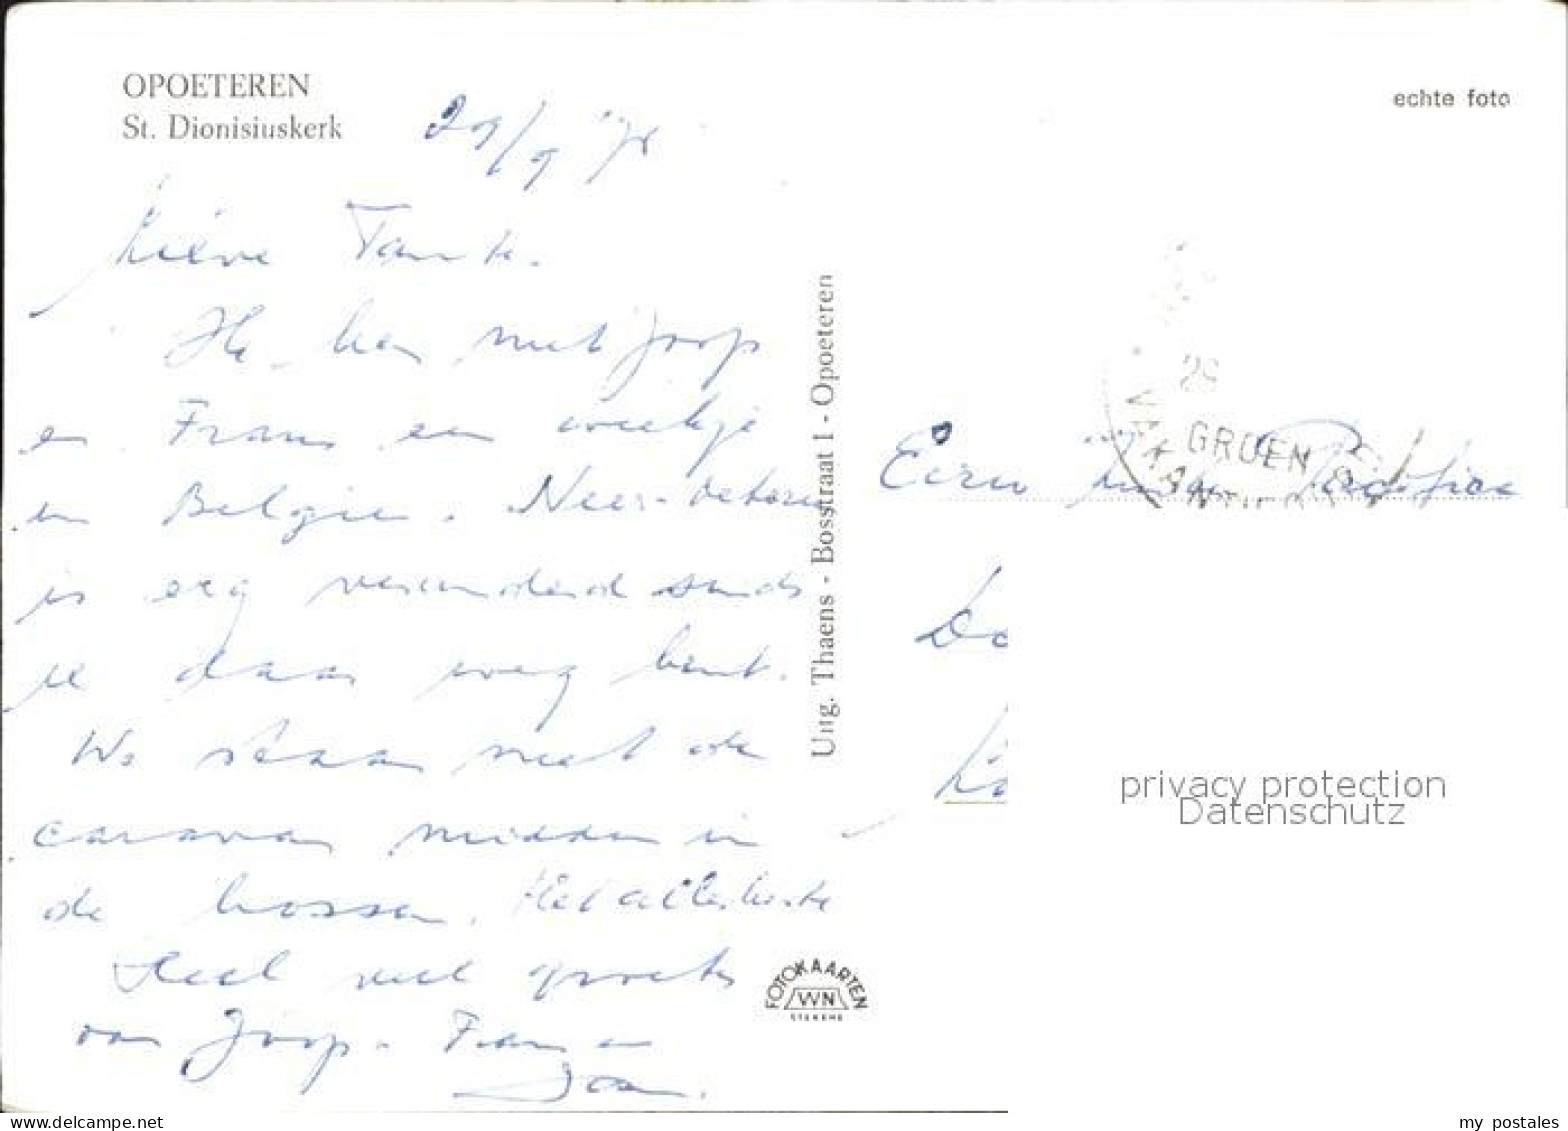 OPOETEREN
St. Dionisiuskerk
29/9 '71
echte foto
Lieve Tante.
Ik ben met Joop
en Frans een weekje
in België. Neer-oeteren
is erg veranderd sinds
je daar weg bent.
We staan met de
caravan midden in
de bossen. Het allerbeste
Heel veel groetjes
van Joop. Frans en
Uitg. Thaens - Bosstraat 1 - Opoeteren
29
GROEN
VAKAN
Eerw
FOTOKAARTEN
VVN
STEKENE
privacy protection
Datenschutz
delcampe.net
my postales